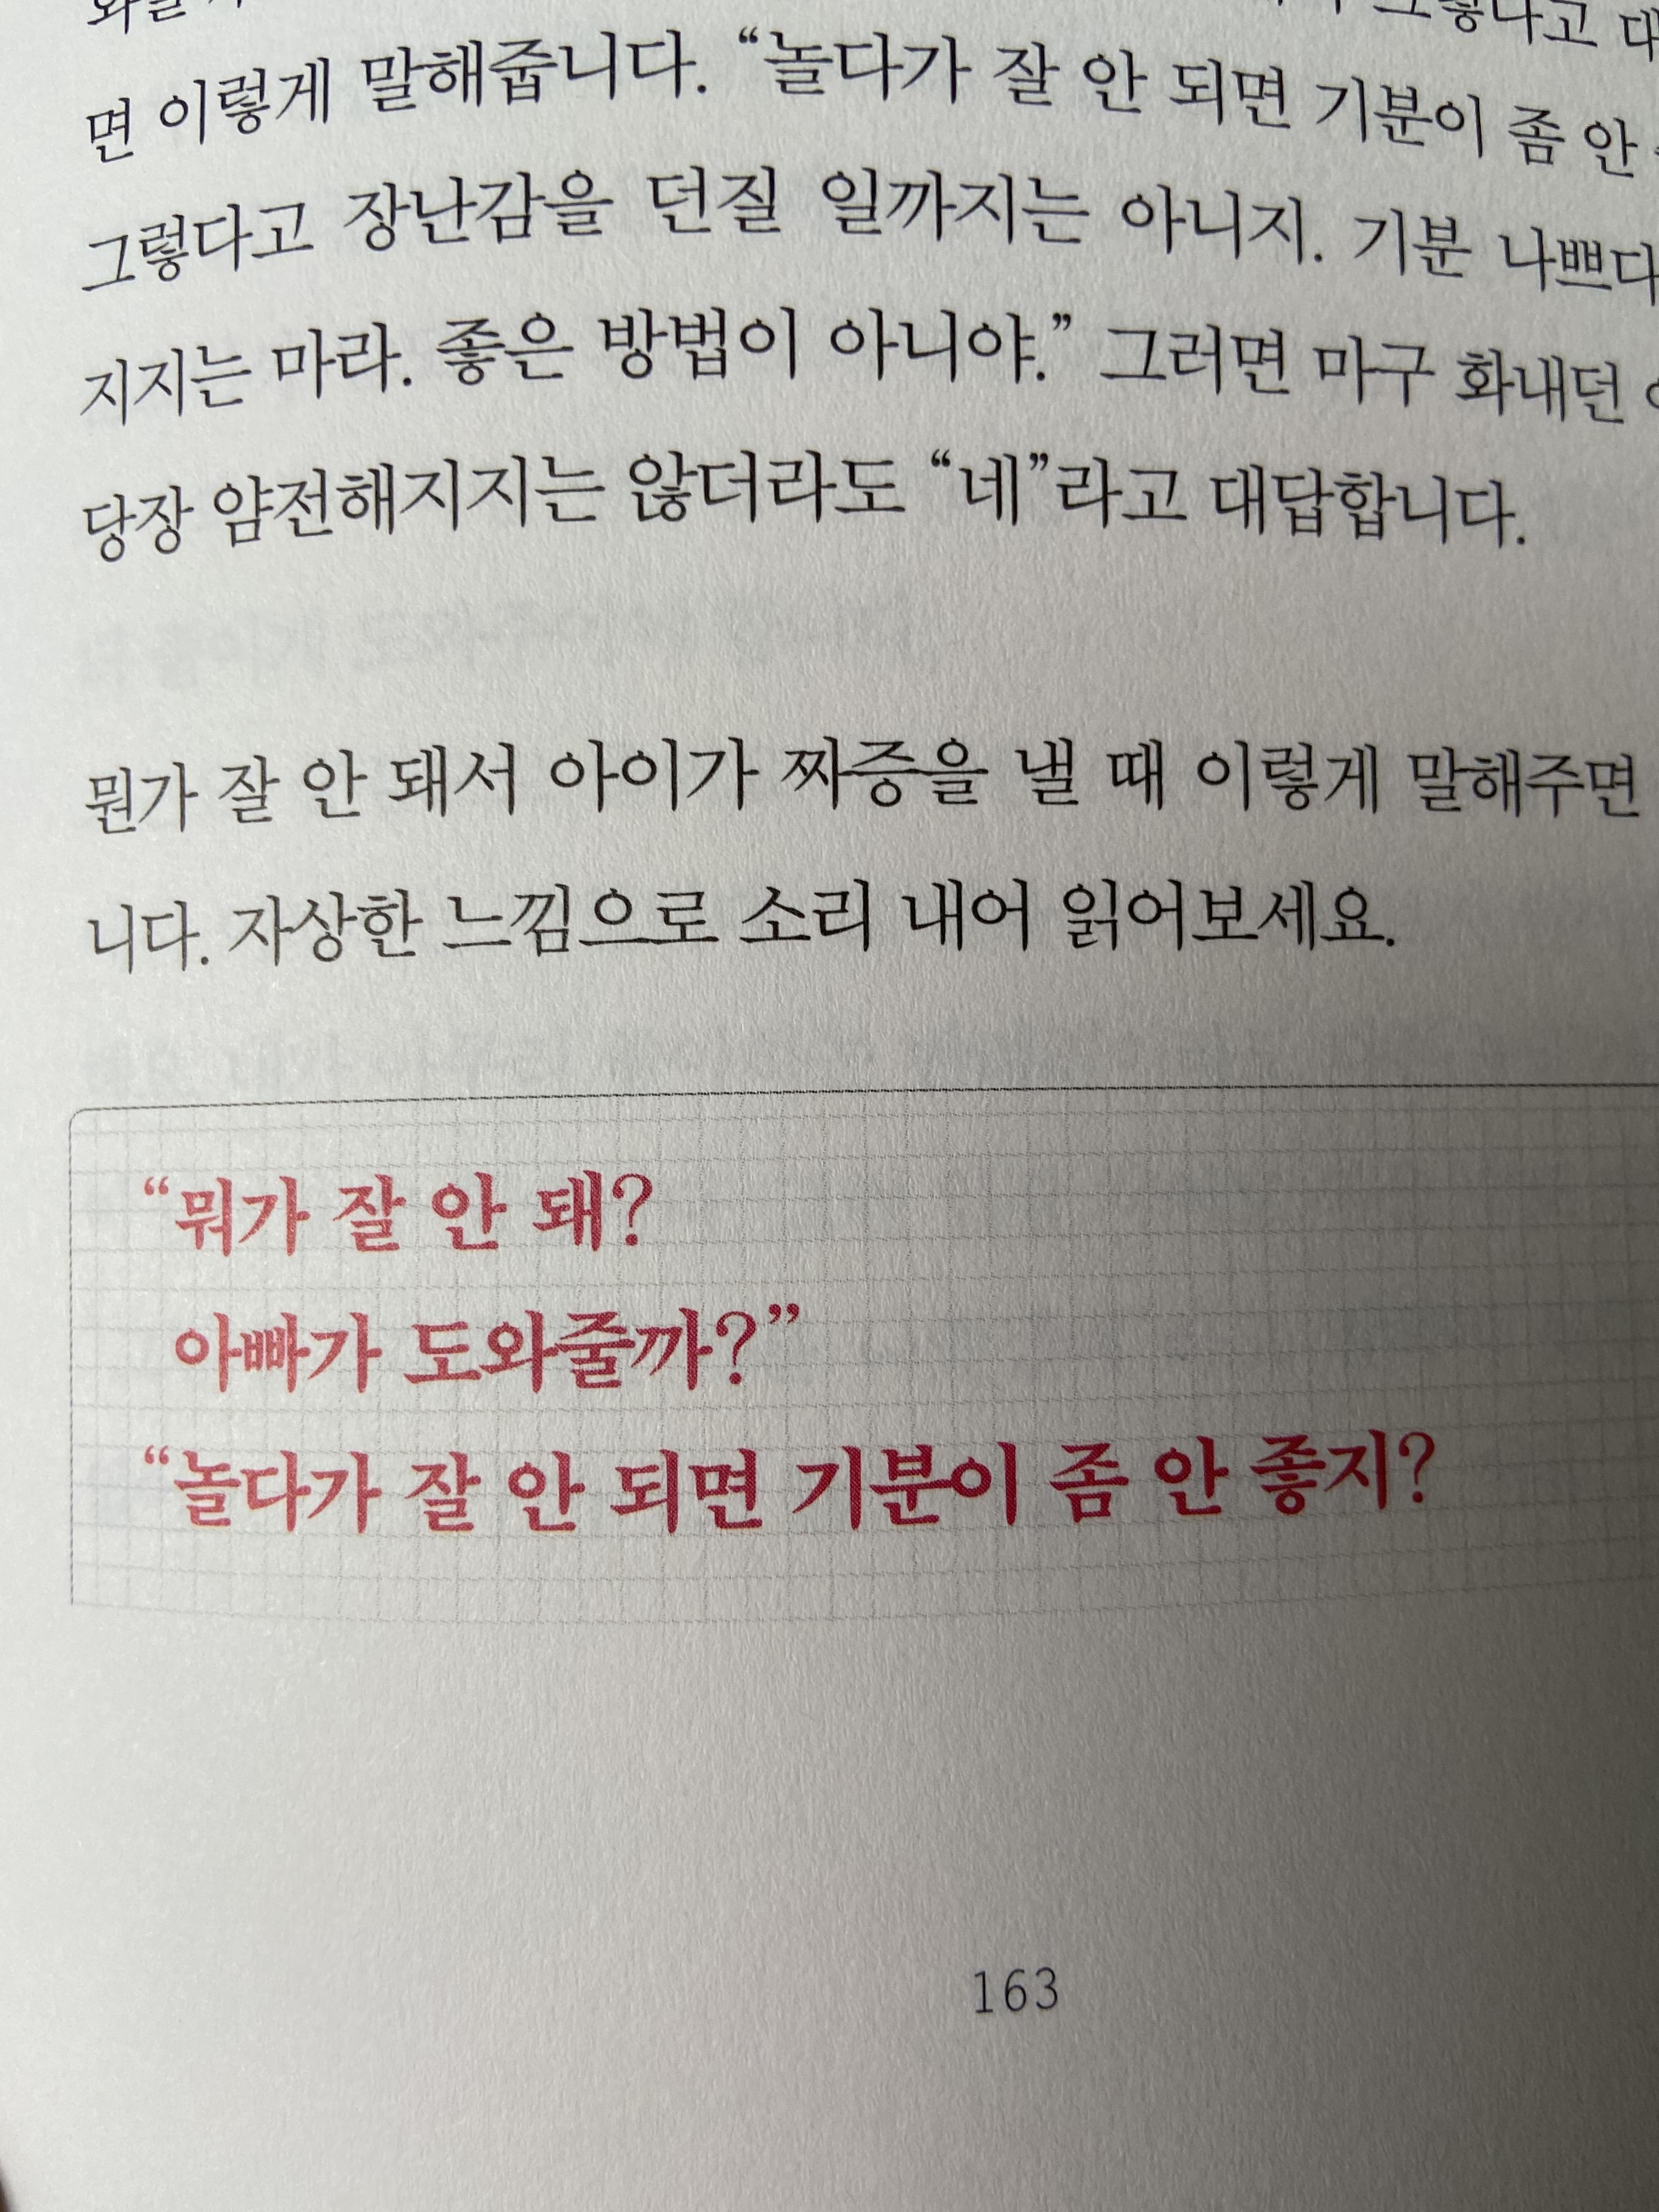 그렇다고
면 이렇게 말해줍니다. “놀다가 잘 안 되면 기분이 좀 안
그렇다고 장난감을 던질 일까지는 아니지. 기분 나쁘다
지지는 마라. 좋은 방법이 아니야.” 그러면 마구 화내던
당장 얌전해지지는 않더라도 “네”라고 대답합니다.
뭔가 잘 안 돼서 아이가 짜증을 낼 때 이렇게 말해주면
니다. 자상한 느낌으로 소리 내어 읽어보세요.
“뭐가 잘 안 돼?
아빠가 도와줄까?”
“놀다가 잘 안 되면 기분이 좀 안 좋지?
163